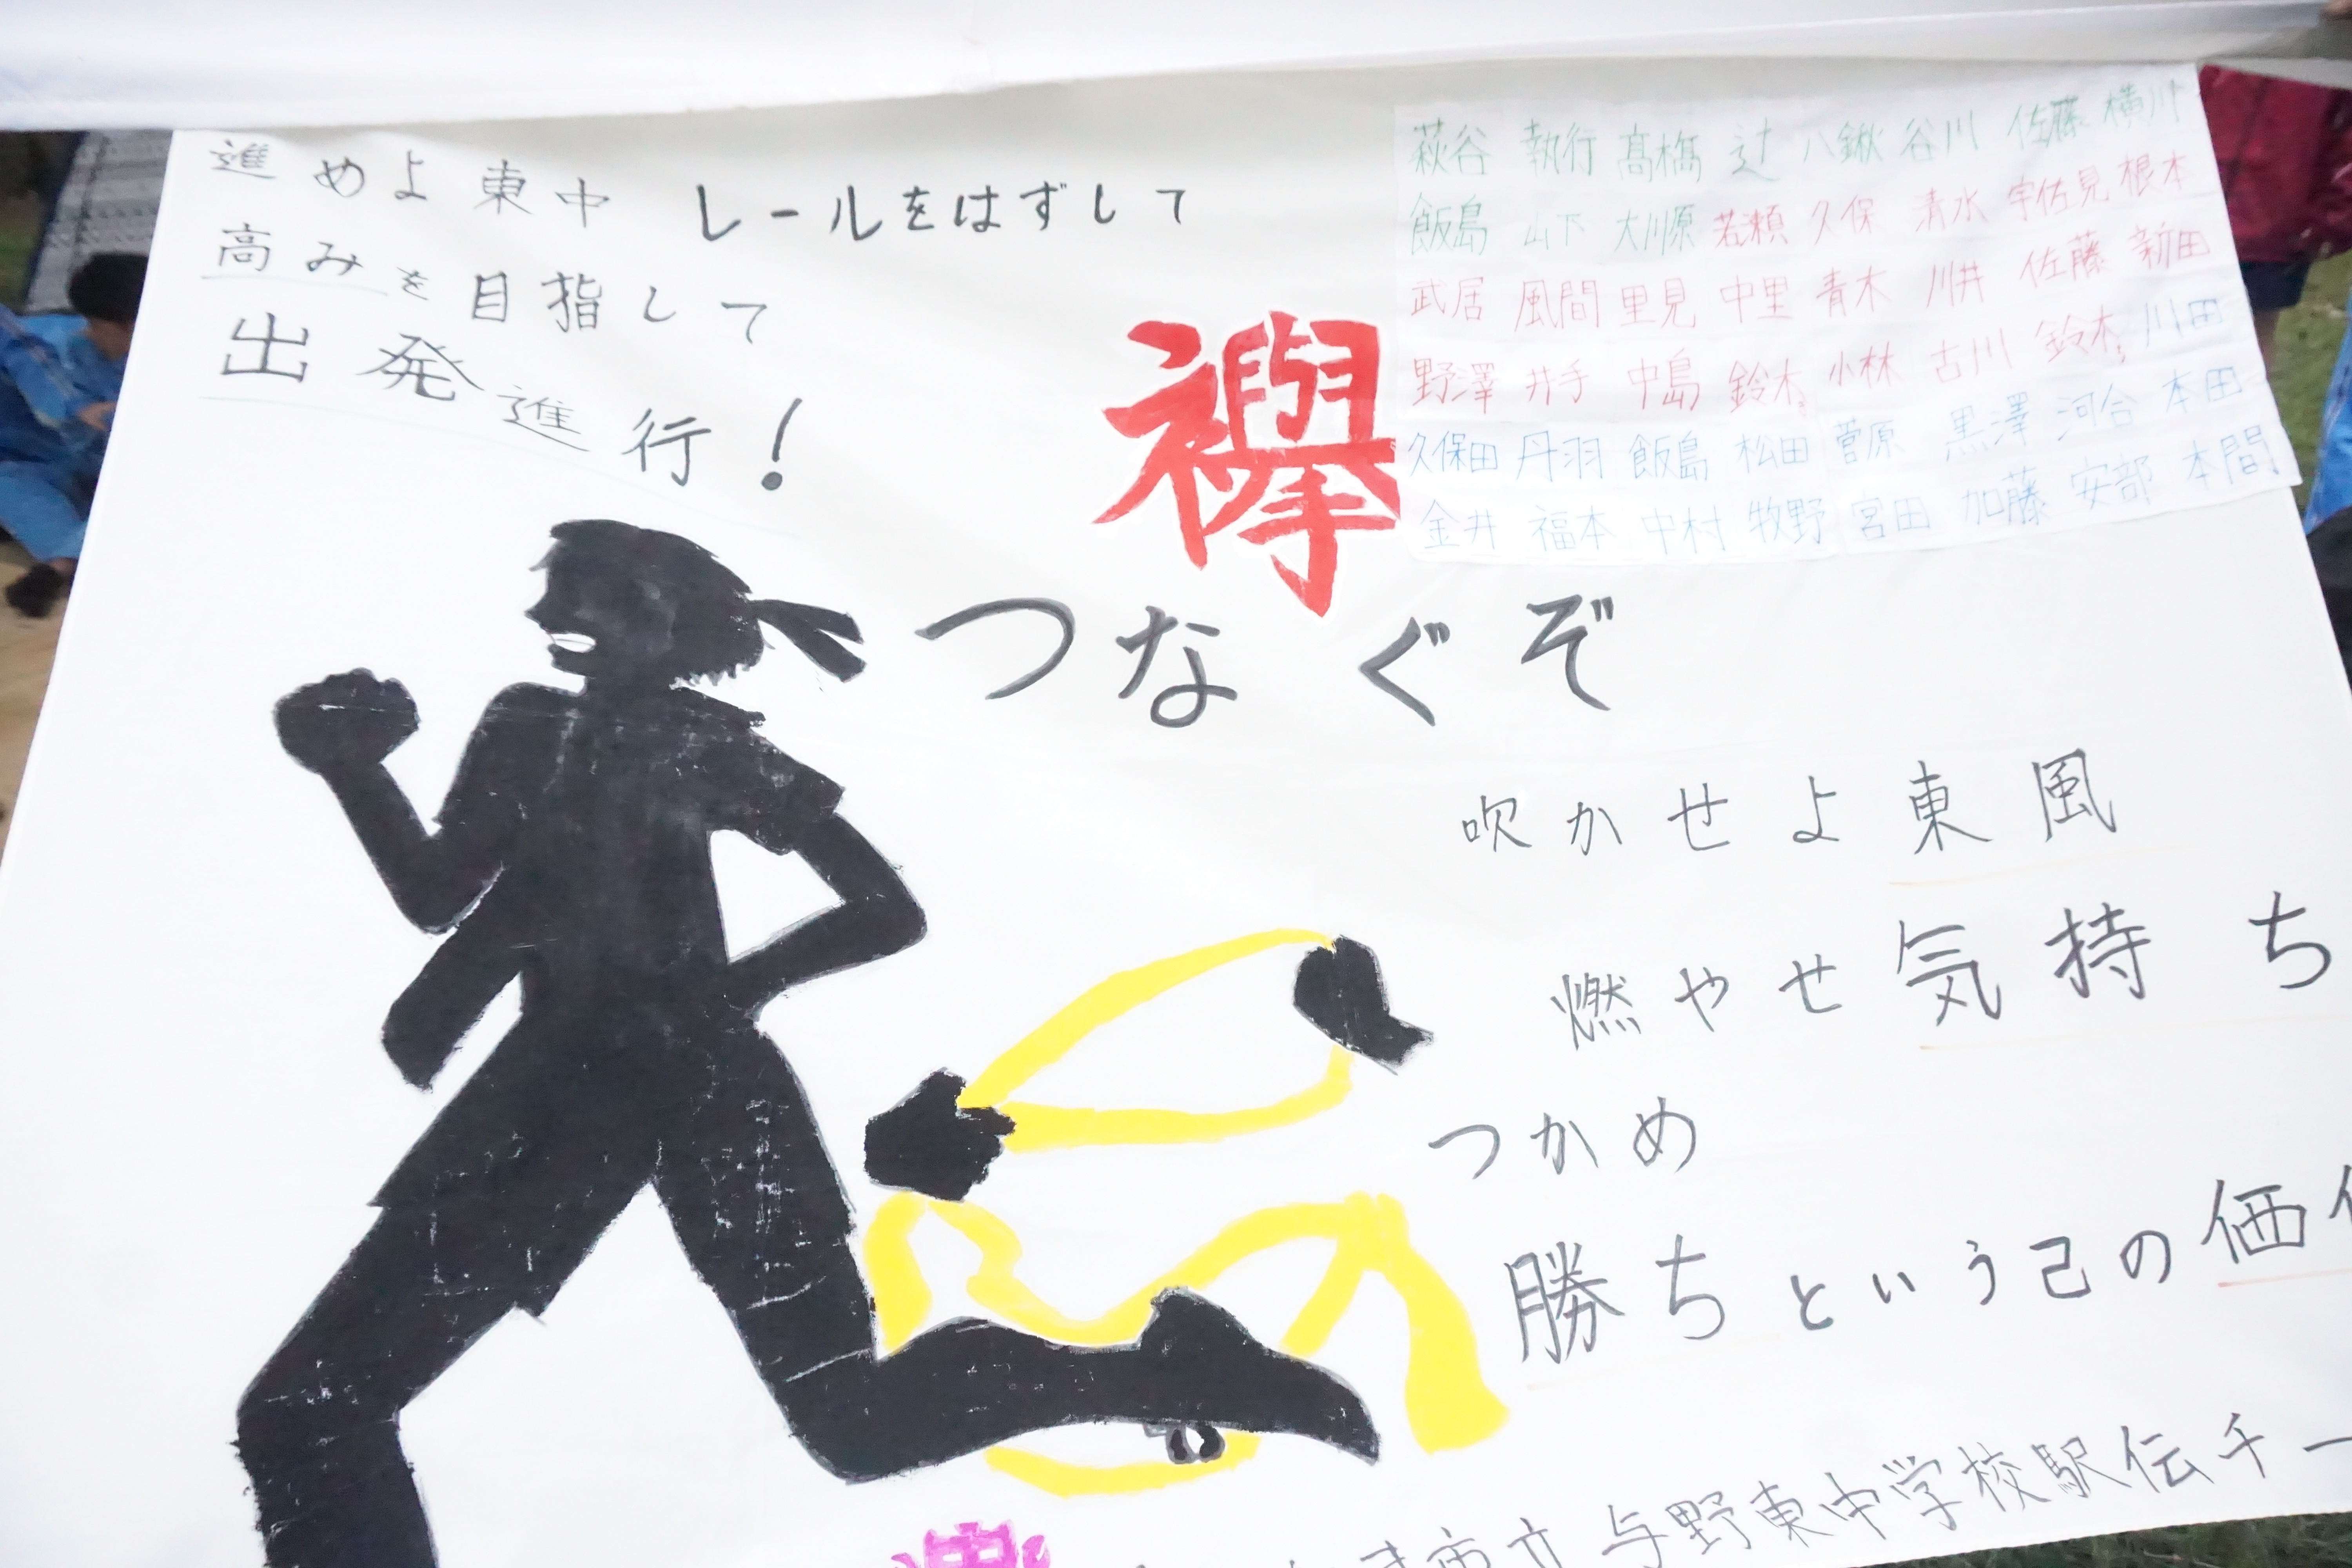 進めよ東中 レールをはずして
高みを目指して
出発進行！
襷
つなぐぞ
萩谷 執行 髙橋 辻 八鍬 谷川 佐藤 横川
飯島 山下 大川原 若瀬 久保 清水 宇佐見 根本
武居 風間 里見 中里 青木 川井 佐藤 新田
野澤 井手 中島 鈴木 小林 古川 鈴木 川田
久保田 丹羽 飯島 松田 菅原 黒澤 河合 本田
金井 福本 中村 牧野 宮田 加藤 安部 本間
吹かせよ東風
燃やせ気持ち
つかめ
勝ちという己の価
市立与野東中学校駅伝チー